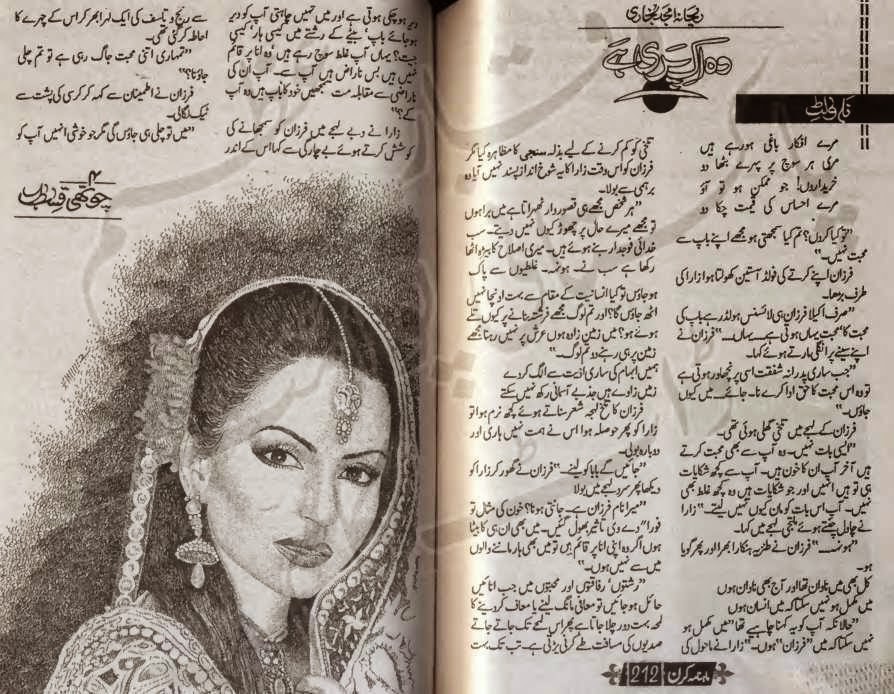 ریحانہ امجد بخاری
وہ اک پری ہے
ناولٹ
مرے افکار باغی ہورہے ہیں
مری ہر سوچ پر پہرے بٹھا دو
خریدارو! جو ممکن ہو تو آؤ
مرے احساس کی قیمت چکا دو
”تو کیا کروں؟ تم کیا سمجھتی ہو مجھے اپنے باپ سے
محبت نہیں۔“
فرزان اپنے کرتے کی فولڈ آستین کھولتا ہوا زارا کی
طرف بڑھا۔
”صرف اکیلا فرزان ہی لائسنس ہولڈر ہے باپ کی
محبت کا محبت یہاں ہوتی ہے۔ یہاں۔۔“ فرزان نے
اپنے سینے پر انگلی مارتے ہوئے کہا۔
”جب ساری پدرانہ شفقت اسی پر نچھاور ہوتی ہے
تو وہ اس محبت کا حق ادا کرے نا۔ جائے۔ میں کیوں
جاؤں۔“
فرزان کے لہجے میں تلخی گھلی ہوئی تھی۔
”ایسی بات نہیں۔ وہ آپ سے بھی محبت کرتے
ہیں آخر آپ ان کا خون ہیں۔ آپ سے کچھ شکایات
ہی تو ہیں انہیں اور جو شکایات ہیں وہ کچھ غلط بھی
نہیں۔ آپ اس بات کو مان کیوں نہیں لیتے۔“ زارا
نے چاول چنتے ہوئے ملتجی لہجے میں کہا۔
”ہونہہ۔“ فرزان نے طنزیہ ہنکارا بھرا اور پھر گویا
ہو۔
کل بھی میں نادان تھا اور آج بھی نادان ہوں
میں مکمل ہو نہیں سکتا کہ میں انسان ہوں
”حالانکہ آپ کو یہ کہنا چاہیے تھا ”میں مکمل ہو
نہیں سکتا کہ میں ”فرزان“ ہوں۔“ زارا نے ماحول کی
تلخی کو کم کرنے کے لیے بذلہ سنجی کا مظاہرہ کیا مگر
فرزان کو اس وقت زارا کا یہ شوخ انداز پسند نہیں آیا وہ
برہمی سے بولا۔
”ہر شخص مجھے ہی قصوروار ٹھہراتا ہے میں برا ہوں
تو مجھے میرے حال پر چھوڑ کیوں نہیں دیتے۔ سب
خدائی فوجدار بنے ہوئے ہیں۔ میری اصلاح کا بیڑہ اٹھا
رکھا ہے سب نے۔ ہونہہ۔ غلطیوں سے پاک
ہو جاؤں تو کیا انسانیت کے مقام سے بہت اونچا نہیں
اٹھ جاؤں گا؟ اور تم لوگ مجھے فرشتہ بنانے پر کیوں تلے
ہوئے ہو؟ میں زمین زادہ ہوں عرش پر نہیں رہنا مجھے
زمین پر ہی رہنے دو تم لوگ۔“
ہمیں ابہام کی ساری اذیت سے الگ کر دے
زمیں زادے ہیں جذبے آسمانی رکھ نہیں سکتے
فرزان کا تلخ لہجہ شعر سناتے ہوئے کچھ نرم ہوا تو
زارا کو پھر حوصلہ ہوا اس نے ہمت نہیں ہاری اور
دوبارہ بولی۔
”جائیں گے بابا کو لینے۔“ فرزان نے گھور کر زارا کو
دیکھا پھر سرد لہجے میں بولا
”میرا نام فرزان ہے۔ جانتی ہو نا؟ خون کی مثال تو
فوراً“ دے دی تاثیر بھول گئیں۔ میں بھی ان ہی کا بیٹا
ہوں اگر وہ اپنی انا پر قائم ہیں تو میں بھی ہار ماننے والوں
میں سے نہیں ہوں۔“
”رشتوں، رفاقتوں اور محبتوں میں جب انائیں
حائل ہو جائیں تو معافی مانگ لینے یا معاف کر دینے کا
لمحہ بہت دور چلا جاتا ہے پھر اس لمحے تک جاتے جاتے
صدیوں کی مسافت طے کرنی پڑتی ہے۔ تب تک بہت
ماہنامہ کرن 212
دیر ہو چکی ہوتی ہے اور میں نہیں چاہتی آپ کو دیر
ہو جائے باپ، بیٹے کے رشتے میں کیسی ہار، کیسی
جیت؟ یہاں آپ غلط سوچ رہے ہیں، وہ انا پر قائم
نہیں ہیں بس ناراض ہیں آپ سے۔ آپ ان کی
ناراضی سے مقابلہ مت سمجھیں خود کا باپ ہیں وہ آپ
کے؟“
زارا نے دبے لہجے میں فرزان کو سمجھانے کی
کوشش کرتے ہوئے بے چارگی سے کہا اس کے اندر
سے رنج و تاسف کی ایک لہر ابھر کر اس کے چہرے کا
احاطہ کر گئی تھی۔
”تمہاری اتنی محبت جاگ رہی ہے تو تم چلی
جاؤ نا؟“
فرزان نے اطمینان سے کہہ کر کرسی کی پشت سے
ٹیک لگالی۔
”میں تو چلی ہی جاؤں گی مگر جو خوشی انہیں آپ کو
۴
چوتھی قسط